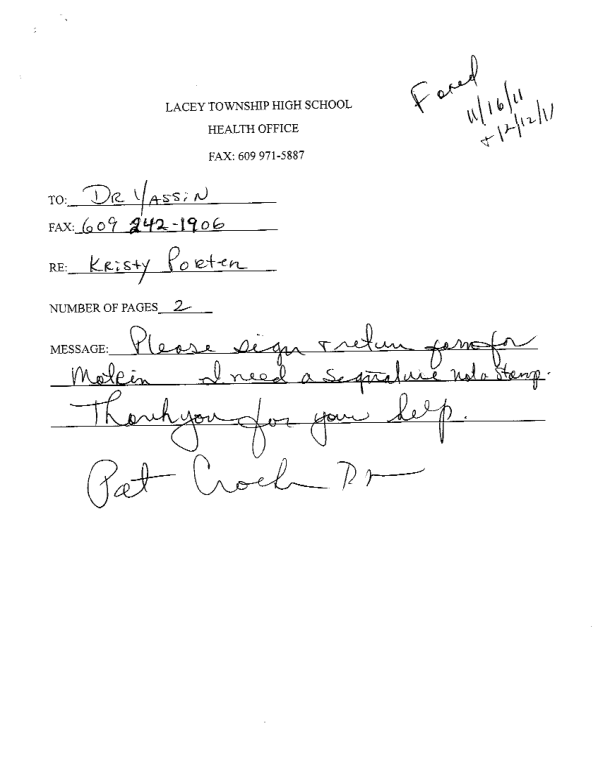 Faxed
11/16/11
+ 12/12/11
LACEY TOWNSHIP HIGH SCHOOL
HEALTH OFFICE
FAX: 609 971-5887
TO: DR YASSIN
FAX: 609 242-1906
RE: Kristy Porten
NUMBER OF PAGES 2
MESSAGE: Please sign & return form for
Motrin I need a signature not a stamp.
Thank you for your help.
Pat